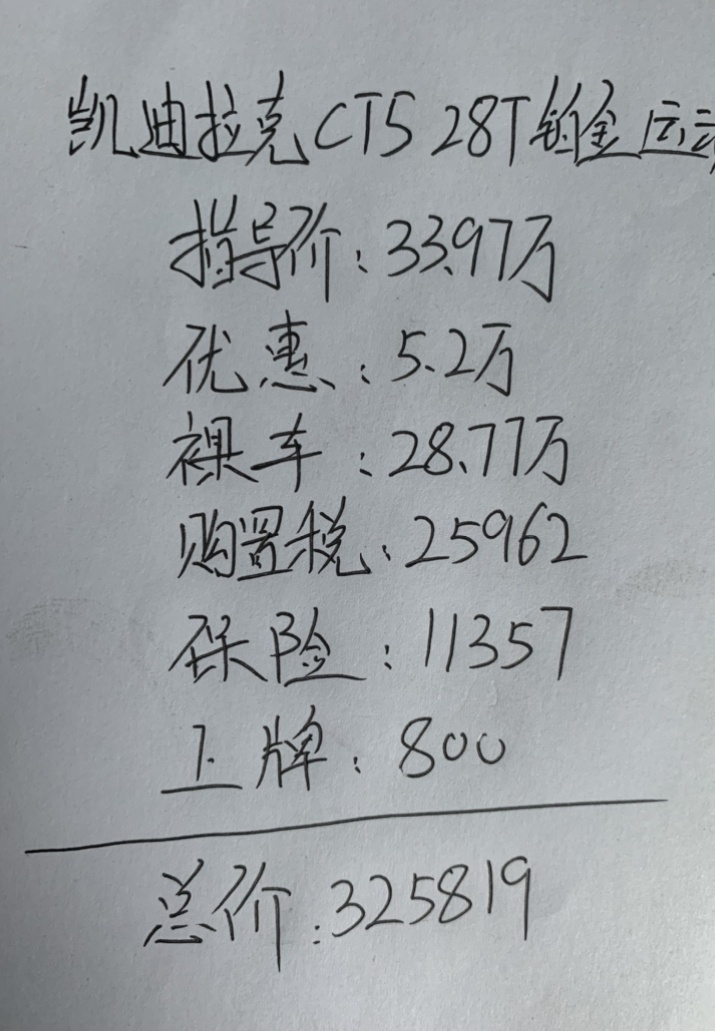 凯迪拉克CT5 28T铂金运动
指导价：33.97万
优惠：5.2万
裸车：28.77万
购置税：25962
保险：11357
上牌：800
总价：325819